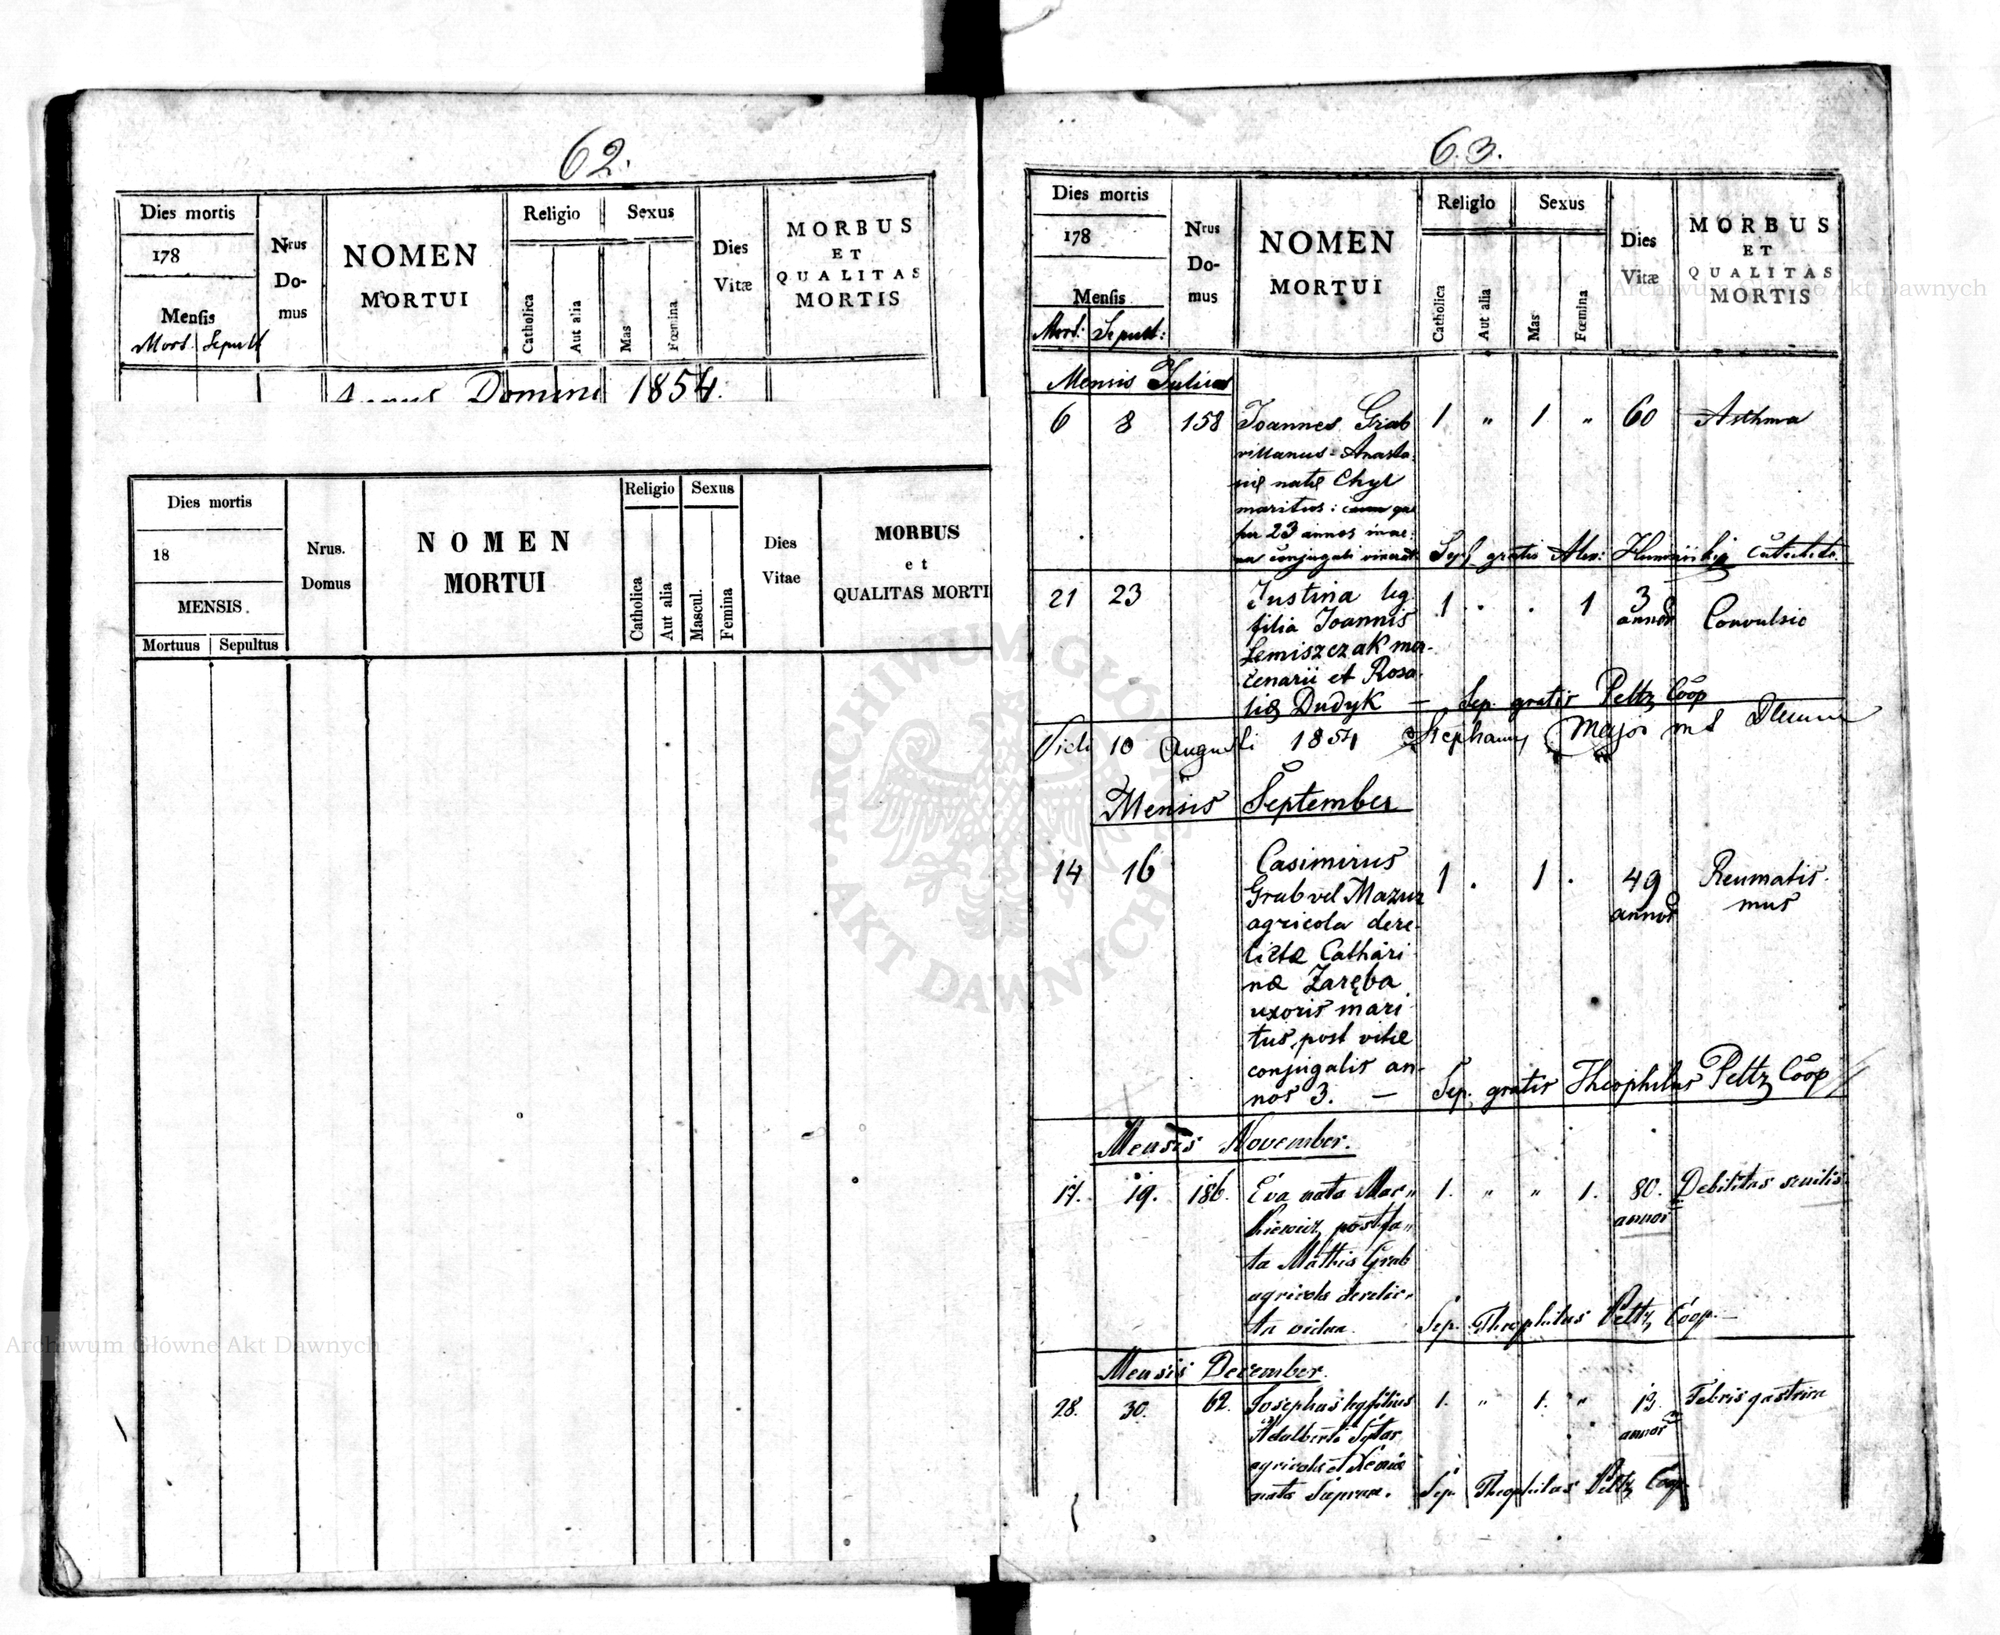 62.
Dies mortis
178
Mensis
Mort. Sepult
Nrus
Do-
mus
NOMEN
MORTUI
Religio
Catholica
Aut alia
Sexus
Mas
Fœmina
Dies
Vitæ
MORBUS
ET
QUALITAS
MORTIS
Annus Domini 1854.
Dies mortis
18
MENSIS.
Mortuus Sepultus
Nrus.
Domus
NOMEN
MORTUI
Religio
Catholica
Aut alia
Sexus
Mascul.
Femina
Dies
Vitae
MORBUS
et
QUALITAS MORTI
63.
Dies mortis
178
Mensis
Mort: Sepult:
Nrus
Do-
mus
NOMEN
MORTUI
Religio
Catholica
Aut alia
Sexus
Mas
Fœmina
Dies
Vitæ
MORBUS
ET
QUALITAS
MORTIS
Mensis Julius
6 8 158 Joannes Grab 1 " 1 " 60 Asthma
villanus Anasta-
siæ natæ Chyl
maritus: cum qua
per 23 annos in
conjugali vixerat Sep. gratis Alex:
21 23 Justina leg. 1 . . 1 3 annor Convulsio
filia Joannis
Lemiszczak mer-
cenarii et Rosa-
liæ Dudyk — Sep. gratis Peltz Coop
Vidi 10 Augusti 1854 Stephanus Major
Mensis September
14 16 Casimirus 1 . 1 . 49 annor Reumatis-
mus
Grab vel Mazur
agricola dere-
lictæ Cathari-
næ Zaręba
uxoris mari-
tus, post vitæ
conjugalis an-
nos 3. — Sep. gratis Theophilus Peltz Coop
Mensis November.
17. 19. 186. Eva nata Mac" 1. " " 1. 80. annor Debilitas senilis
kiewicz post fa"
ta Mathis Grab
agricolæ derelic"
ta vidua. Sep. Theophilus Peltz Coop. —
Mensis December.
28. 30. 62. Josephus leg filius 1. " 1. " 13 annor Febris gastrica
Adalberti Sytar
agricolæ et
nata Sep. Theophilus Peltz Coop.
Archiwum Główne Akt Dawnych
Archiwum Główne Akt Dawnych
ARCHIWUM GŁÓWNE AKT DAWNYCH